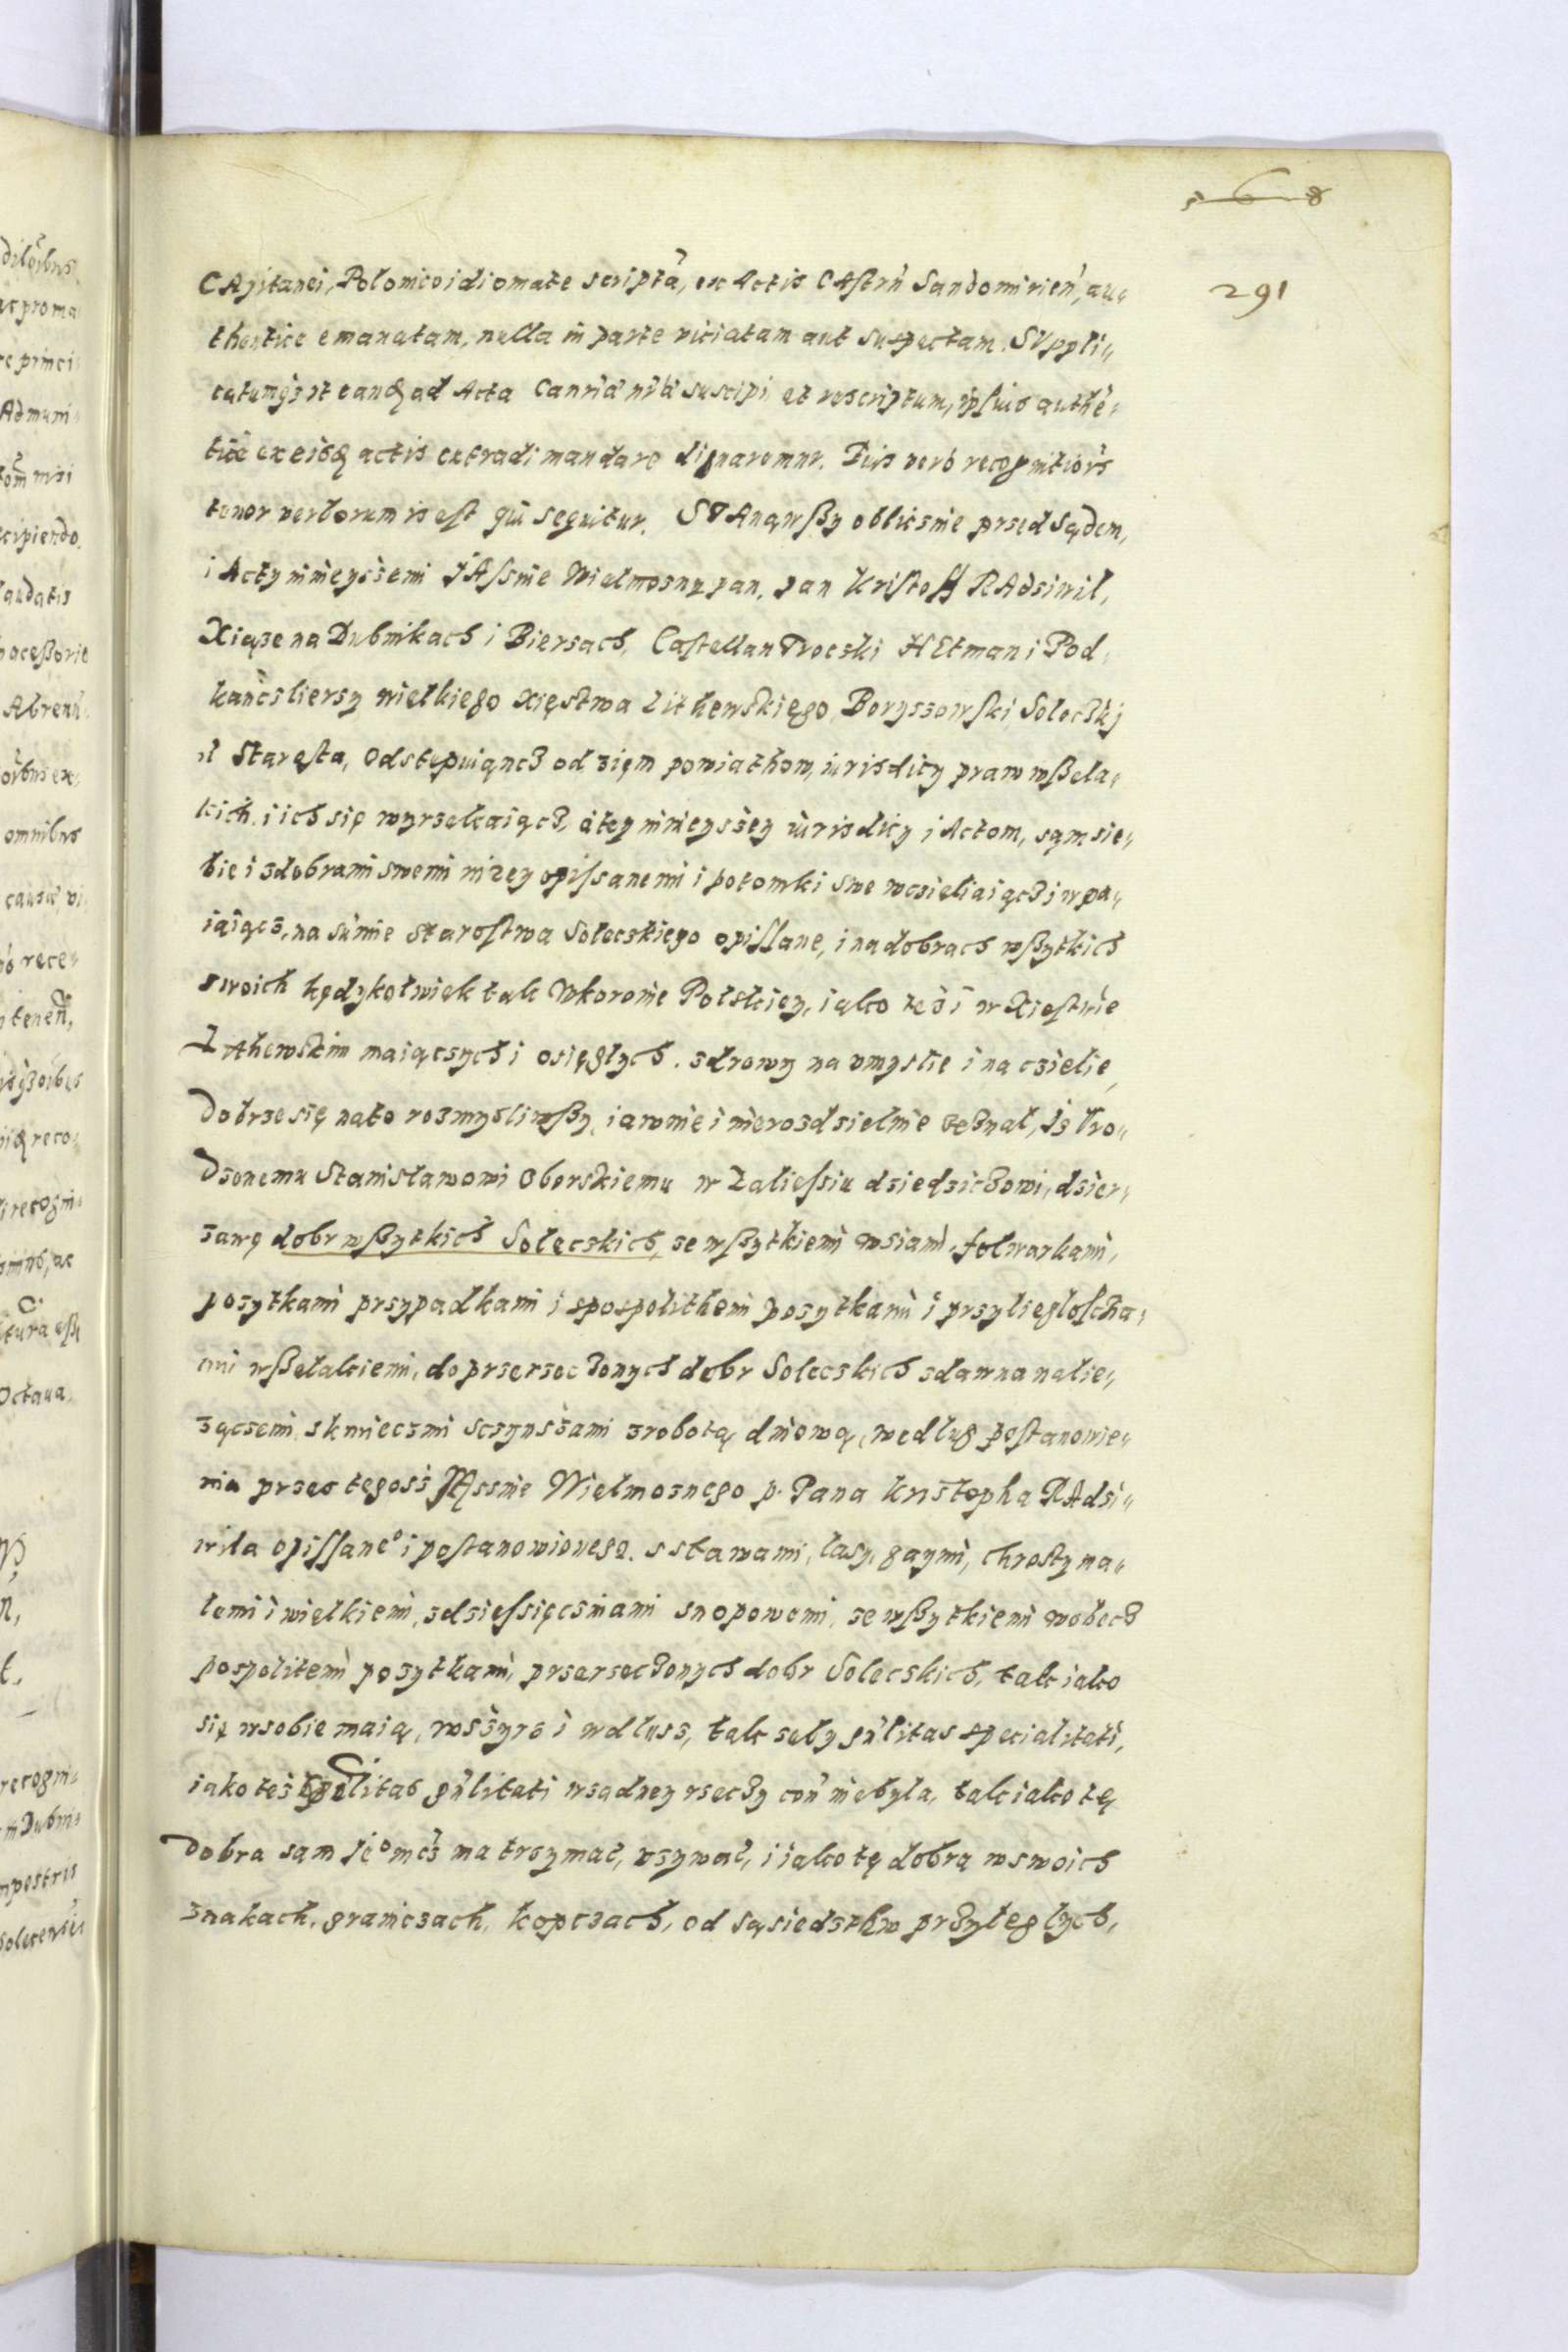 568
291
CApitanei, Polonico idiomate scriptã, ex Actis CAstrñ Sandomirieñ, au„
thentice emanatam, nulla in parte viciatam aut suspectam. SVppli„
catumqз ut eandẽ ad Acta Canriæ nr̃æ suscipi et rescriptum, ipsius authẽ„
tice ex eisdẽ actis extradi mandare dignaremur. Cuis vero recognitiois
tenor verborum is est qui sequitur. STAnąwßy oblicsnie przed Sądem,
i Acty ninieyszemi JAsnie Wielmozny pan, pan Kristoff RAdziwil,
Xiąze na Dubinkach i Bierzach, Castellan Trocski HEtman i Pod„
kanczlierzy wielkiego Xięstwa Lithewskiego, Boryszowski Solecskj
ɛ̃ Starosta, Odstępuiąncz od ziem powiathow, iurisdicy praw wßela„
kich. i ich się wyrzekaiącz, á tey ninieyszey iurisdicy i Actom, sąm sie„
bie i z dobrami swemi nizey opissanemi i potomki swe wczieliaiącz j wpa„
iaiącz, na sumie Starostwa Solecskiego opissane, i na dobrach wßytkich
swoich kędykolwiek tak W koronie Polskiey, iako też i w Xiestwie
LIthewskim maiączych i osięglych. zdrowy na umyslie i na czielie,
Dobrze się na to rozmysliwßy, iawnie i nierozdzielnie zeznal, Iz Vro„
Dzonemu Stanislawowi Oborskiemu w Zaliessiu dziedziczowi, dzier„
zawę dobr wßytkich Solecskich, ze wßytkiemi wsiami, folwarkami,
pozytkami przypadkami i spospolithemi pozytkami i przyliegloscia„
mi wßelakiemi, do przerzeczonych dobr Solecskich zdawna nalie„
ząćzemi, s kmieczmi s czynszami z robotą dniową, według postanowie„
nia przez tegosz JAssnie Wielmoznego p. Pana Kristopha RAdzi„
wila opissaneo i postanowionego. s stawami, lasy, gaymi, chrosty ma„
lemi i wielkiemi, z dziessięczinami snopowemi, ze wßytkiemi wobecz
pospolitemi pozytkami, przerzeczonych dobr Solecskich, tak iako
się w sobie maią, wszyrz i wdlusz, tak zeby gñlitas specialitati,
iako też spelitas gñlitati w zadney rzeczy con̄ niebyla, tak iako tę
Dobra sąm jeo mcż ma trzymac, uzywac, i iako tę dobra w swoich
znakach, graniczach, kopczach, od sąsiedzthw przyleglych,